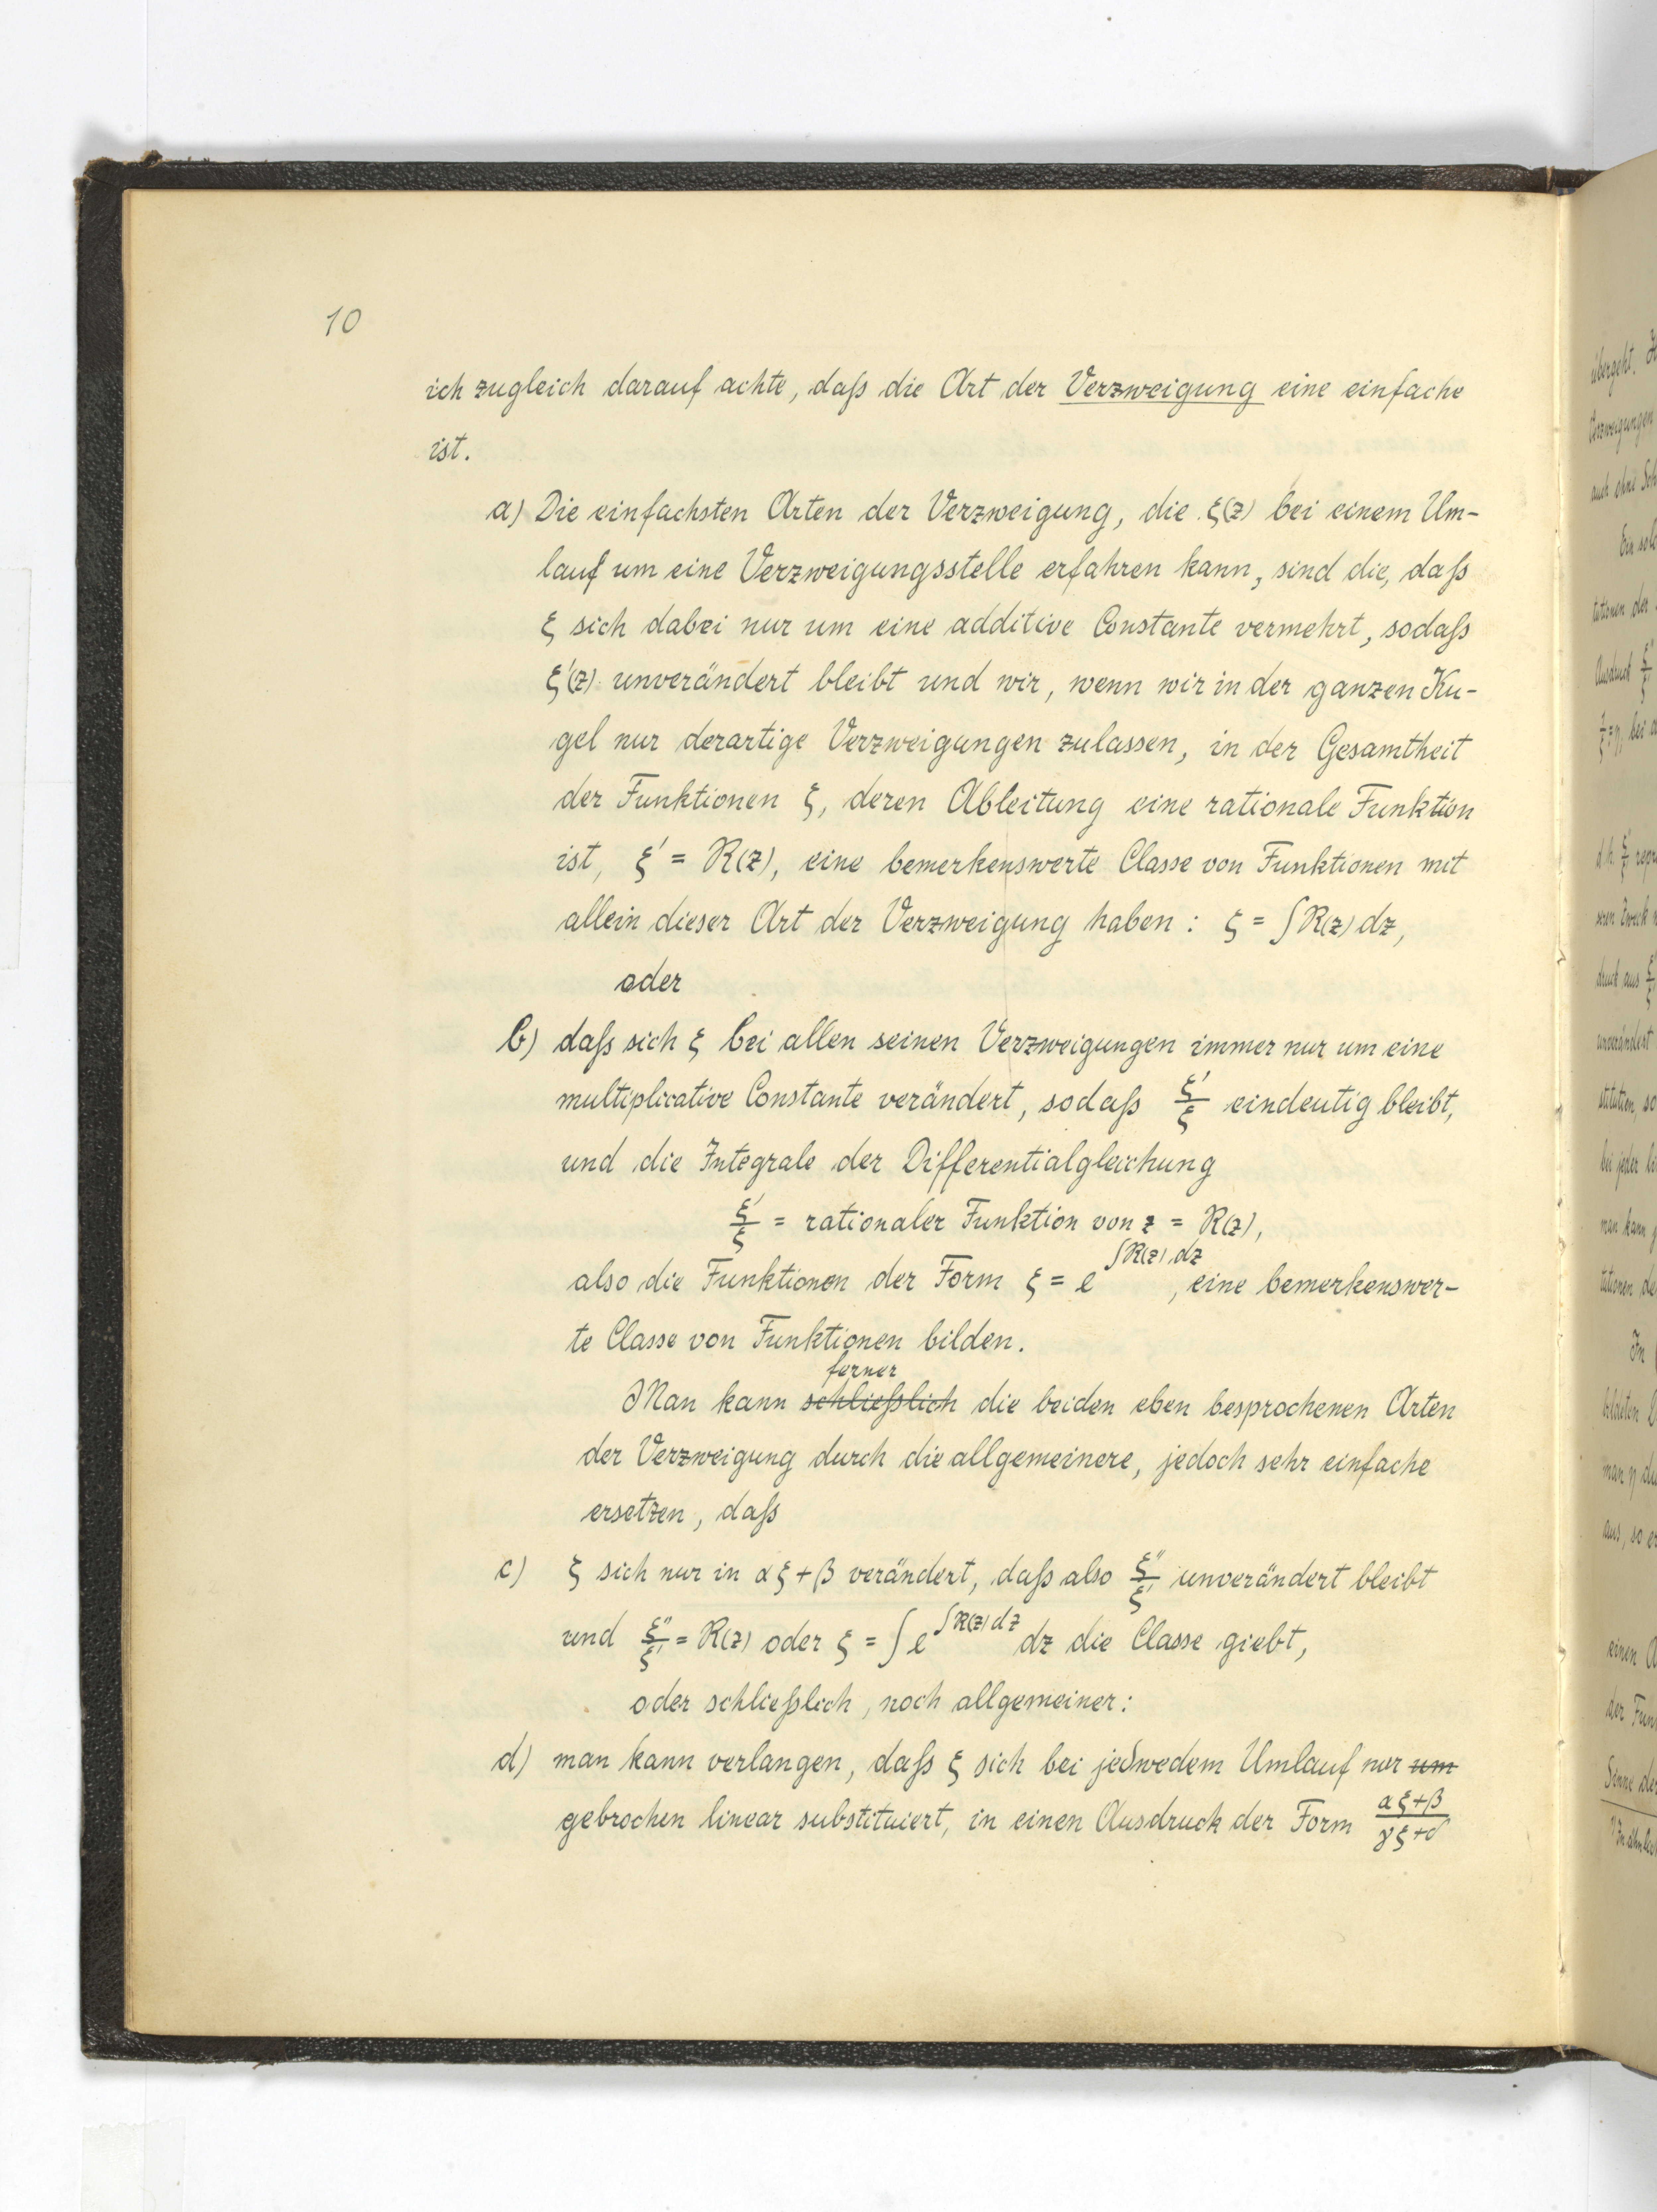 10
ich zugleich darauf achte, daß die Art der Verzweigung eine einfache
ist.
a) Die einfachsten Arten der Verzweigung, die ξ(z) bei einem Um-
lauf um eine Verzweigungsstelle erfahren kann, sind die, daß
ξ sich dabei nur um eine additive Constante vermehrt, sodaß
ξ'(z) unverändert bleibt und wir, wenn wir in der ganzen Ku-
gel nur derartige Verzweigungen zulassen, in der Gesamtheit
der Funktionen ξ, deren Ableitung eine rationale Funktion
ist, ξ' = R(z), eine bemerkenswerte Classe von Funktionen mit
allein dieser Art der Verzweigung haben: ξ = ∫R(z) dz,
oder
b) daß sich ξ bei allen seinen Verzweigungen immer nur um eine
multiplicative Constante verändert, sodaß ξ'/ξ eindeutig bleibt,
und die Integrale der Differentialgleichung
ξ'/ξ = rationaler Funktion von z = R(z),
also die Funktionen der Form ξ = e^∫R(z) dz, eine bemerkenswer-
te Classe von Funktionen bilden.
ferner
Man kann schließlich die beiden eben besprochenen Arten
der Verzweigung durch die allgemeinere, jedoch sehr einfache
ersetzen, daß
c) ξ sich nur in αξ+β verändert, daß also ξ''/ξ' unverändert bleibt
und ξ''/ξ' = R(z) oder ξ = ∫e^∫R(z) dz dz die Classe giebt,
oder schließlich, noch allgemeiner:
d) man kann verlangen, daß ξ sich bei jedwedem Umlauf nur um
gebrochen linear substituiert, in einen Ausdruck der Form αξ+β/γξ+δ
übergeht.
Verzweigungen
auch ohne